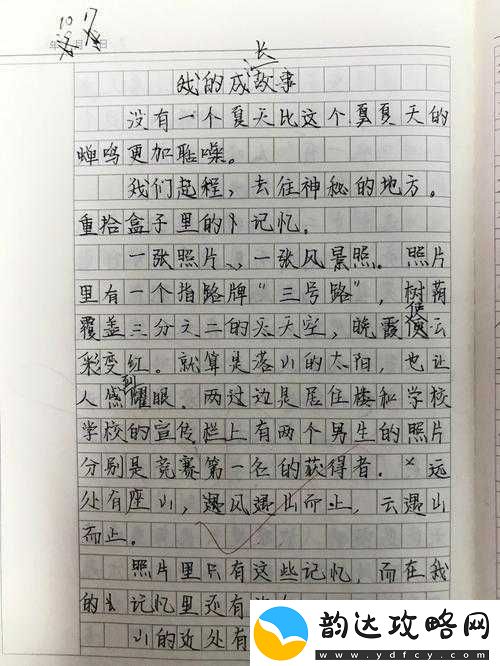 10 7
年 月 日
我的成长故事
没有一个夏天比这个夏夏天的
蝉鸣更加聒噪。
我们起程，去往神秘的地方。
重拾盒子里的记忆。
一张照片、一张风景照。照片
里有一个指路牌“三号路”，树荫
覆盖三分之二的天空，晚霞使云
彩变红。就算是落山的太阳，也让
人感到耀眼。两过边是居住楼和学校
学校的宣传栏上有两个男生的照片
分别是竞赛第一名的获得者。远
处有座山，遇风遇山而止，云遇山
而止。
照片里只有这些记忆，而在我
的记忆里还有
山的近处有
韵达攻略网
www.ydfcy.com